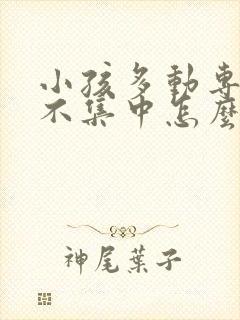 小孩多動專
不集中怎麼
神尾葉子